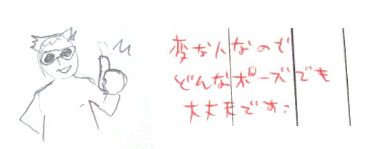 変な人なので
どんなポーズでも
大丈夫です: